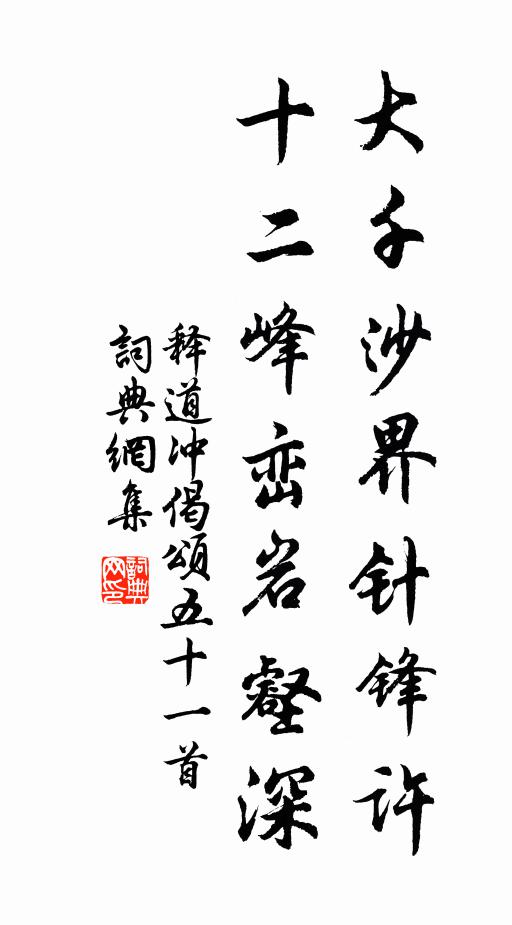 大千沙界针锋许
十二峰峦岩壑深
释道冲偈颂五十一首
詞典網集
詞典网印